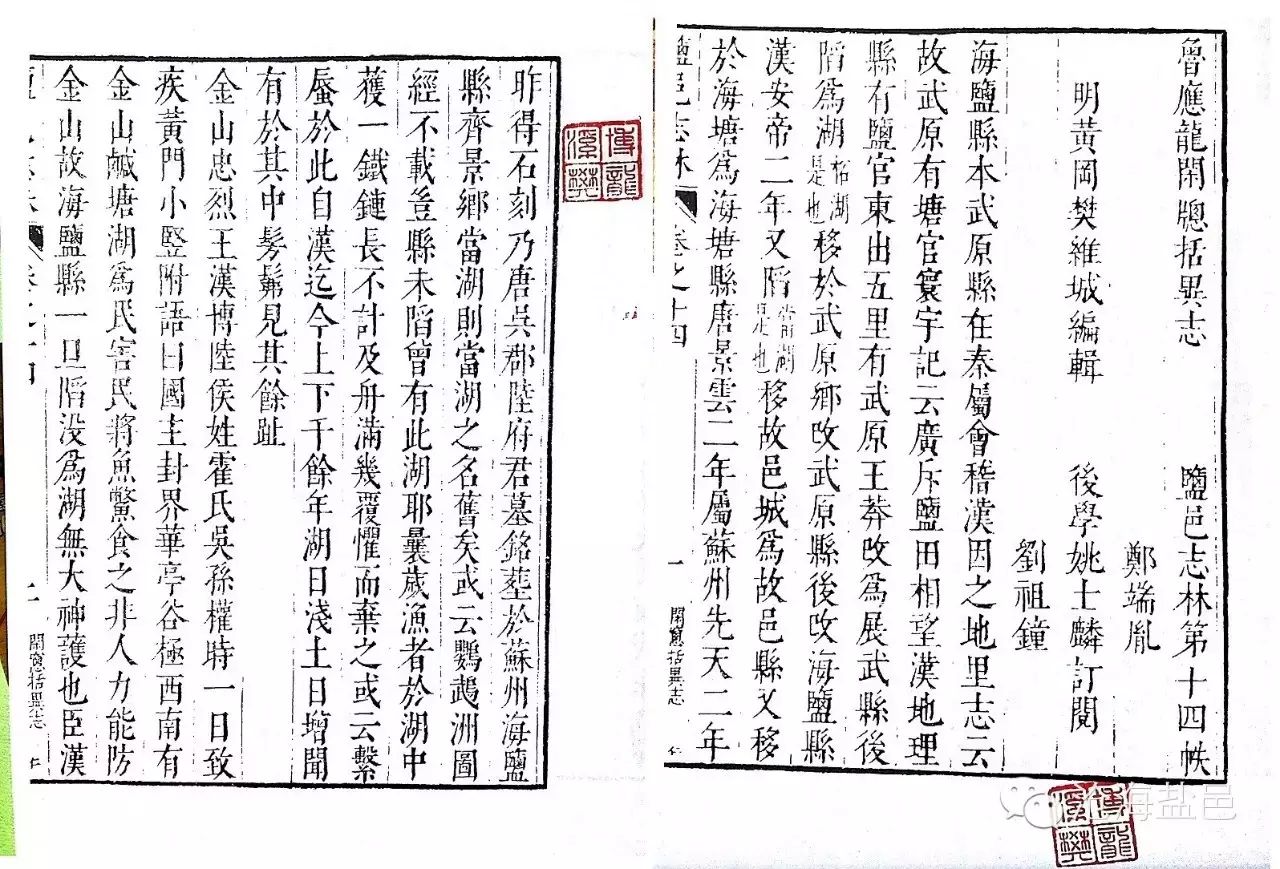 魯應龍閑牕括異志　鹽邑志林第十四帙
鄭端胤
明黃岡樊維城編輯　後學姚士麟訂閱
劉祖鐘
海鹽縣本武原縣在秦屬會稽漢因之地里志云
故武原有塘官寰宇記云廣斥鹽田相望漢地理
縣有鹽官東出五里有武原王莽改為展武縣後
陷爲湖柘湖是也移於武原鄉改武原縣後改海鹽縣
漢安帝二年又陷當湖是也移故邑城爲故邑縣又移
於海塘爲海塘縣唐景雲二年屬蘇州先天二年
鹽邑志林　卷之十四　一　閑窻括異志
昨得石刻乃唐吳郡陸府君墓銘葬於蘇州海鹽
縣齊景鄉當湖則當湖之名舊矣或云鸚鵡洲圖
經不載豈縣未陷曾有此湖耶曩歲漁者於湖中
獲一鐵鏈長不計及舟滿幾覆懼而棄之或云繫
蜃於此自漢迄今上下千餘年湖日淺土日增聞
有於其中髣髴見其餘趾
金山忠烈王漢博陸侯姓霍氏吳孫權時一日致
疾黃門小豎附語曰國主封界華亭谷極西南有
金山鹹塘湖爲民害民將魚鱉食之非人力能防
金山故海鹽縣一旦陷没爲湖無大神護也臣漢
閑窻括異志
博龍
溪樊
博龍
溪樊
海盐邑